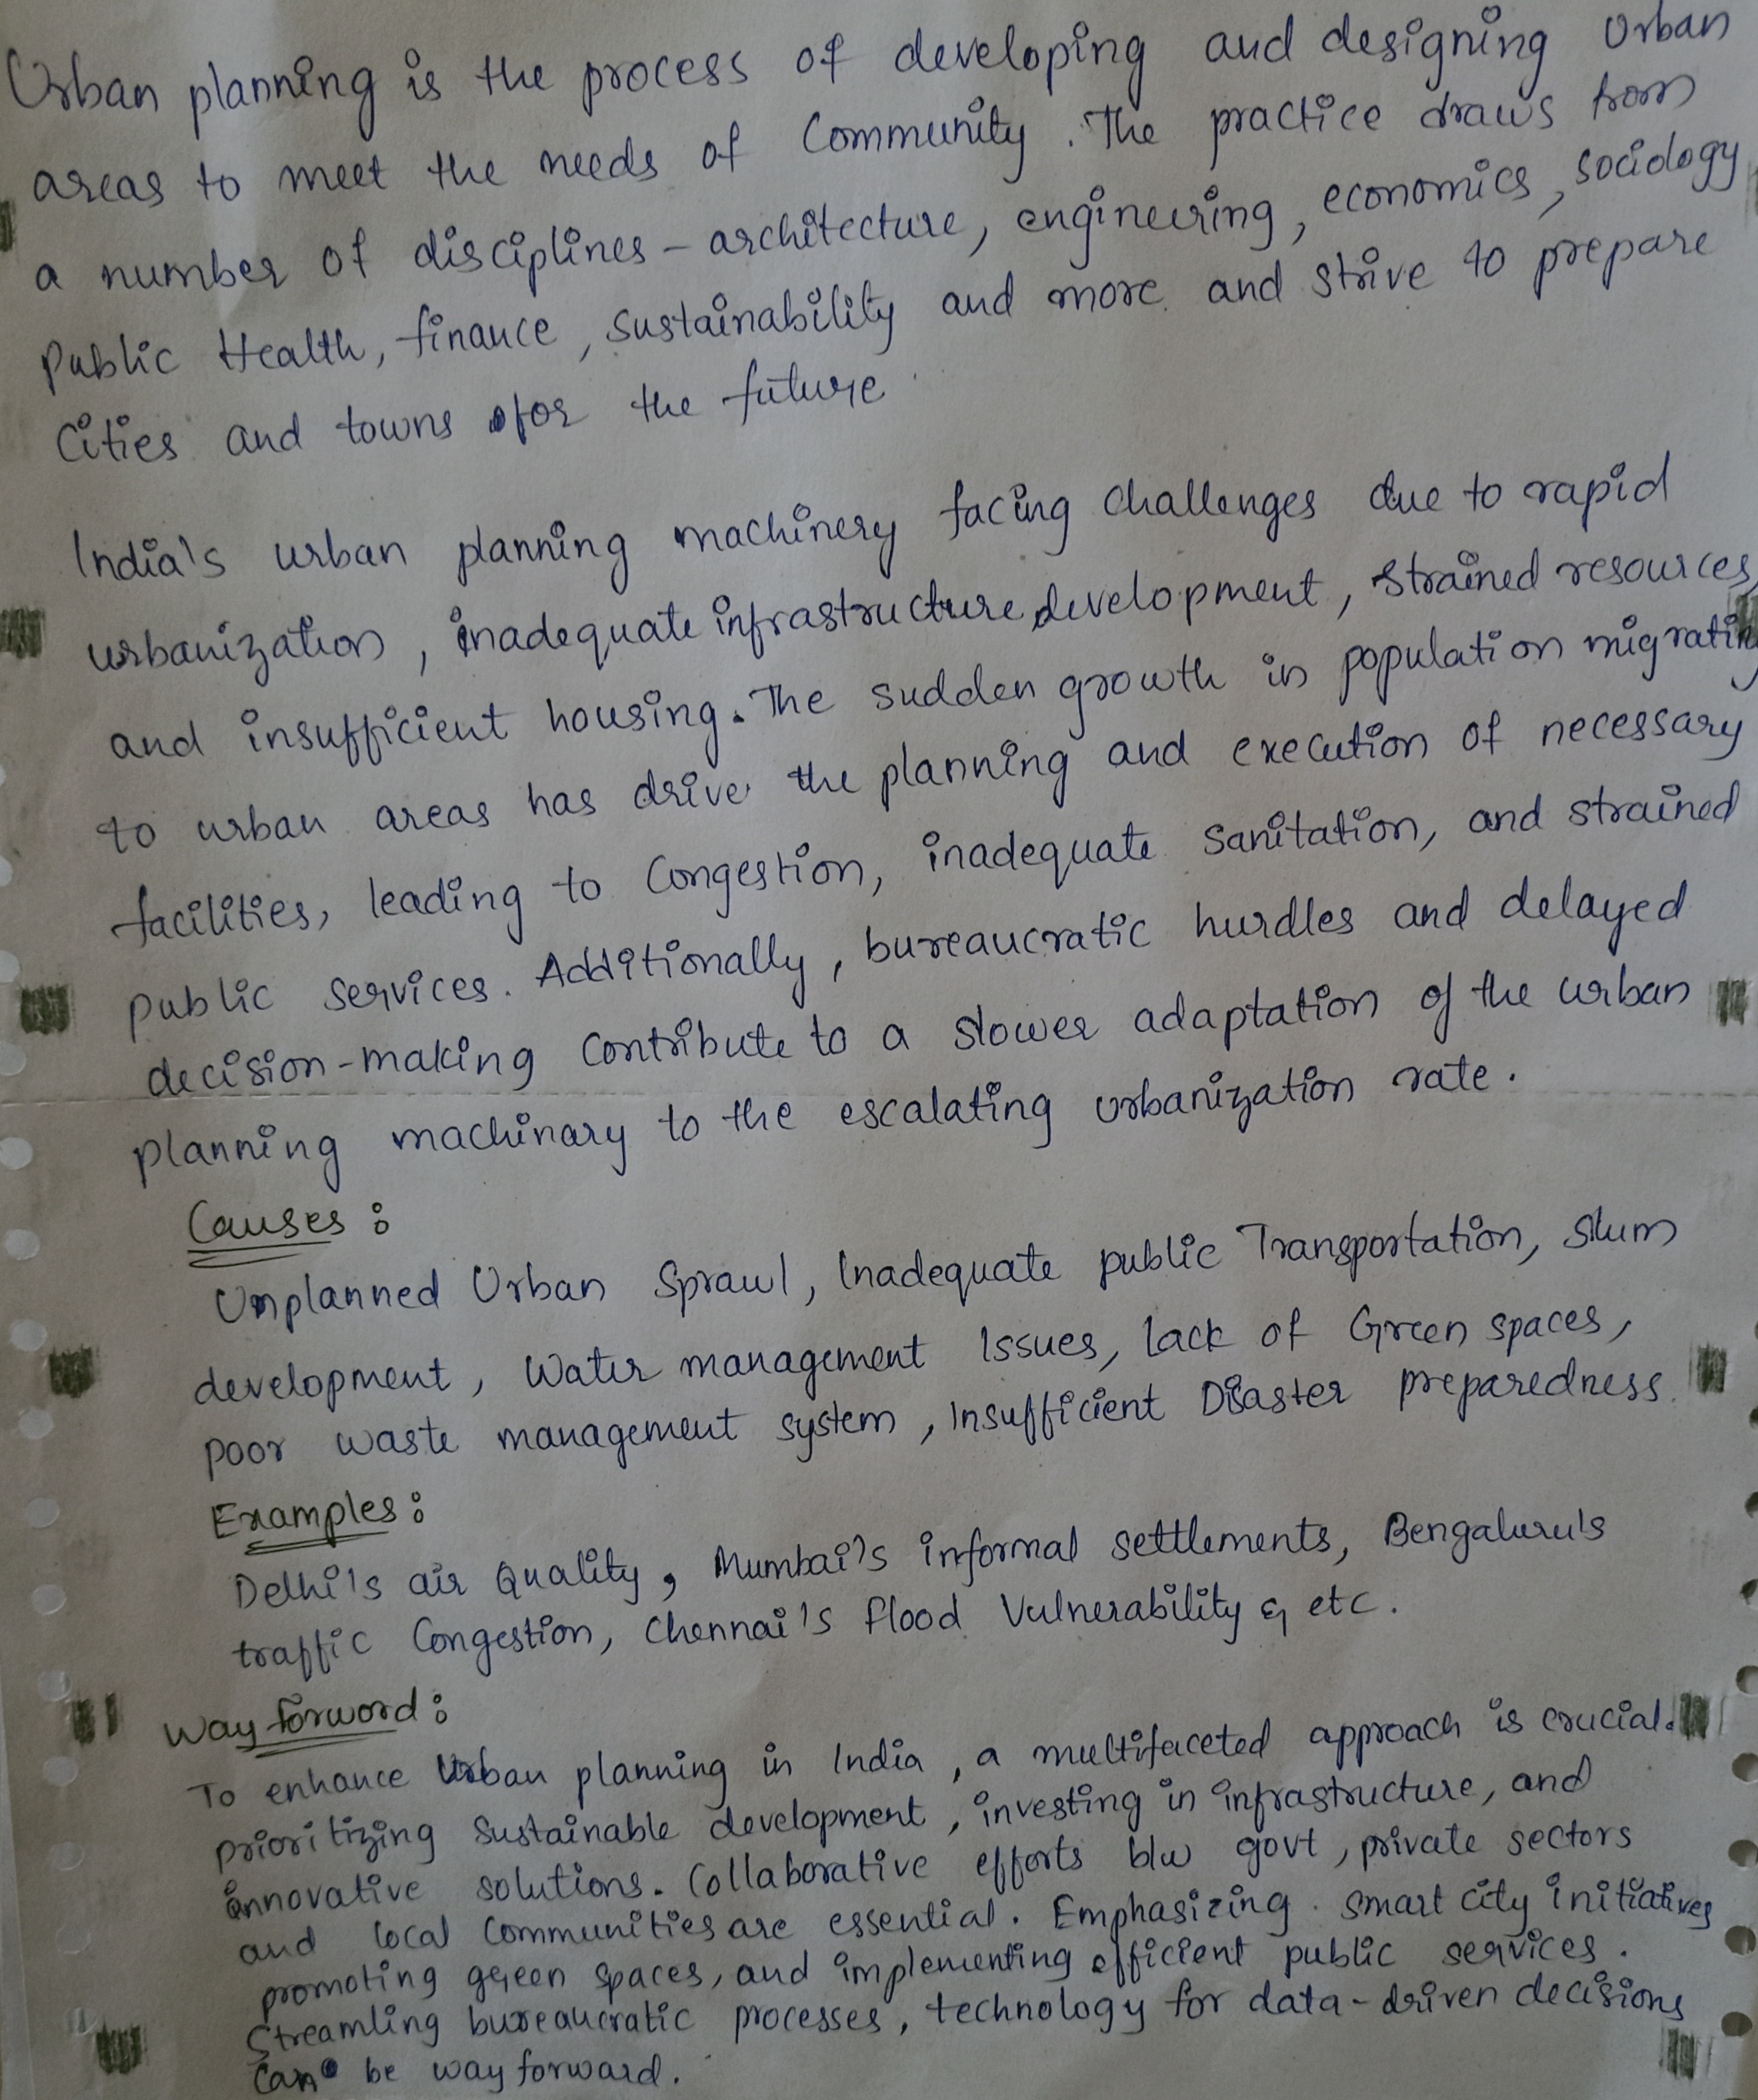 Urban planning is the process of developing and designing Urban
areas to meet the needs of Community. The practice draws from
a number of disciplines - architecture, engineering, economics, sociology
Public Health, finance, sustainability and more and strive to prepare
Cities and towns for the future.
India's urban planning machinery facing challenges due to rapid
urbanization, inadequate infrastructure development, strained resources,
and insufficient housing. The sudden growth in population migrating
to urban areas has drive the planning and execution of necessary
facilities, leading to Congestion, inadequate sanitation, and strained
public services. Additionally, bureaucratic hurdles and delayed
decision-making contribute to a slower adaptation of the urban
planning machinary to the escalating urbanization rate.
Causes:
Unplanned Urban Sprawl, Inadequate public Transportation, slum
development, Water management Issues, lack of Green spaces,
poor waste management system, Insufficient Disaster preparedness.
Examples:
Delhi's air Quality, Mumbai's informal settlements, Bengaluru's
traffic Congestion, Chennai's flood Vulnerability & etc.
Way forword:
To enhance Urban planning in India, a multifaceted approach is crucial.
prioritizing sustainable development, investing in infrastructure, and
innovative solutions. Collaborative efforts b/w govt, private sectors
and local Communities are essential. Emphasizing smart city initiatives
promoting green spaces, and implementing efficient public services.
Streamling bureaucratic processes, technology for data-driven decisions
Can be way forward.